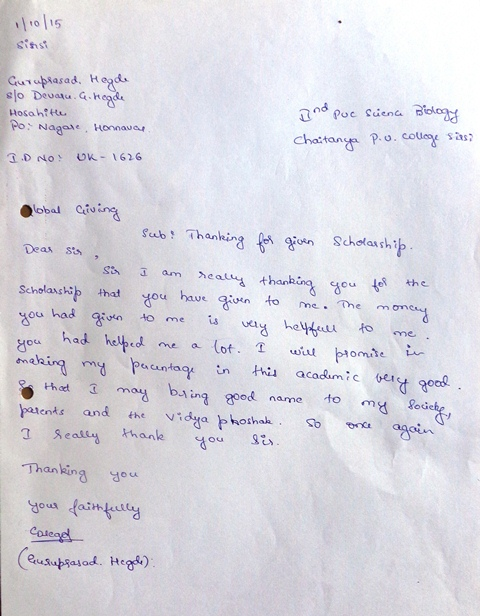 1/10/15
Sirsi
Guruprasad. Hegde
S/O Devaru. G. Hegde
Hosahitlu
PO: Nagare, Honnavar
IInd PUC Science Biology
Chaitanya P.U. College Sirsi
I.D NO: UK - 1626
Global Giving
Sub: Thanking for given Scholarship.
Dear Sir,
Sir I am really thanking you for the
Scholarship that you have given to me. The money
you had given to me is very helpfull to me.
you had helped me a lot. I will promise in
making my pucentage in this acadmic very good.
So that I may bring good name to my Society,
parents and the Vidya phoshak. So once again
I really thank you Sir.
Thanking you
your faithfully
(Guruprasad. Hegde).